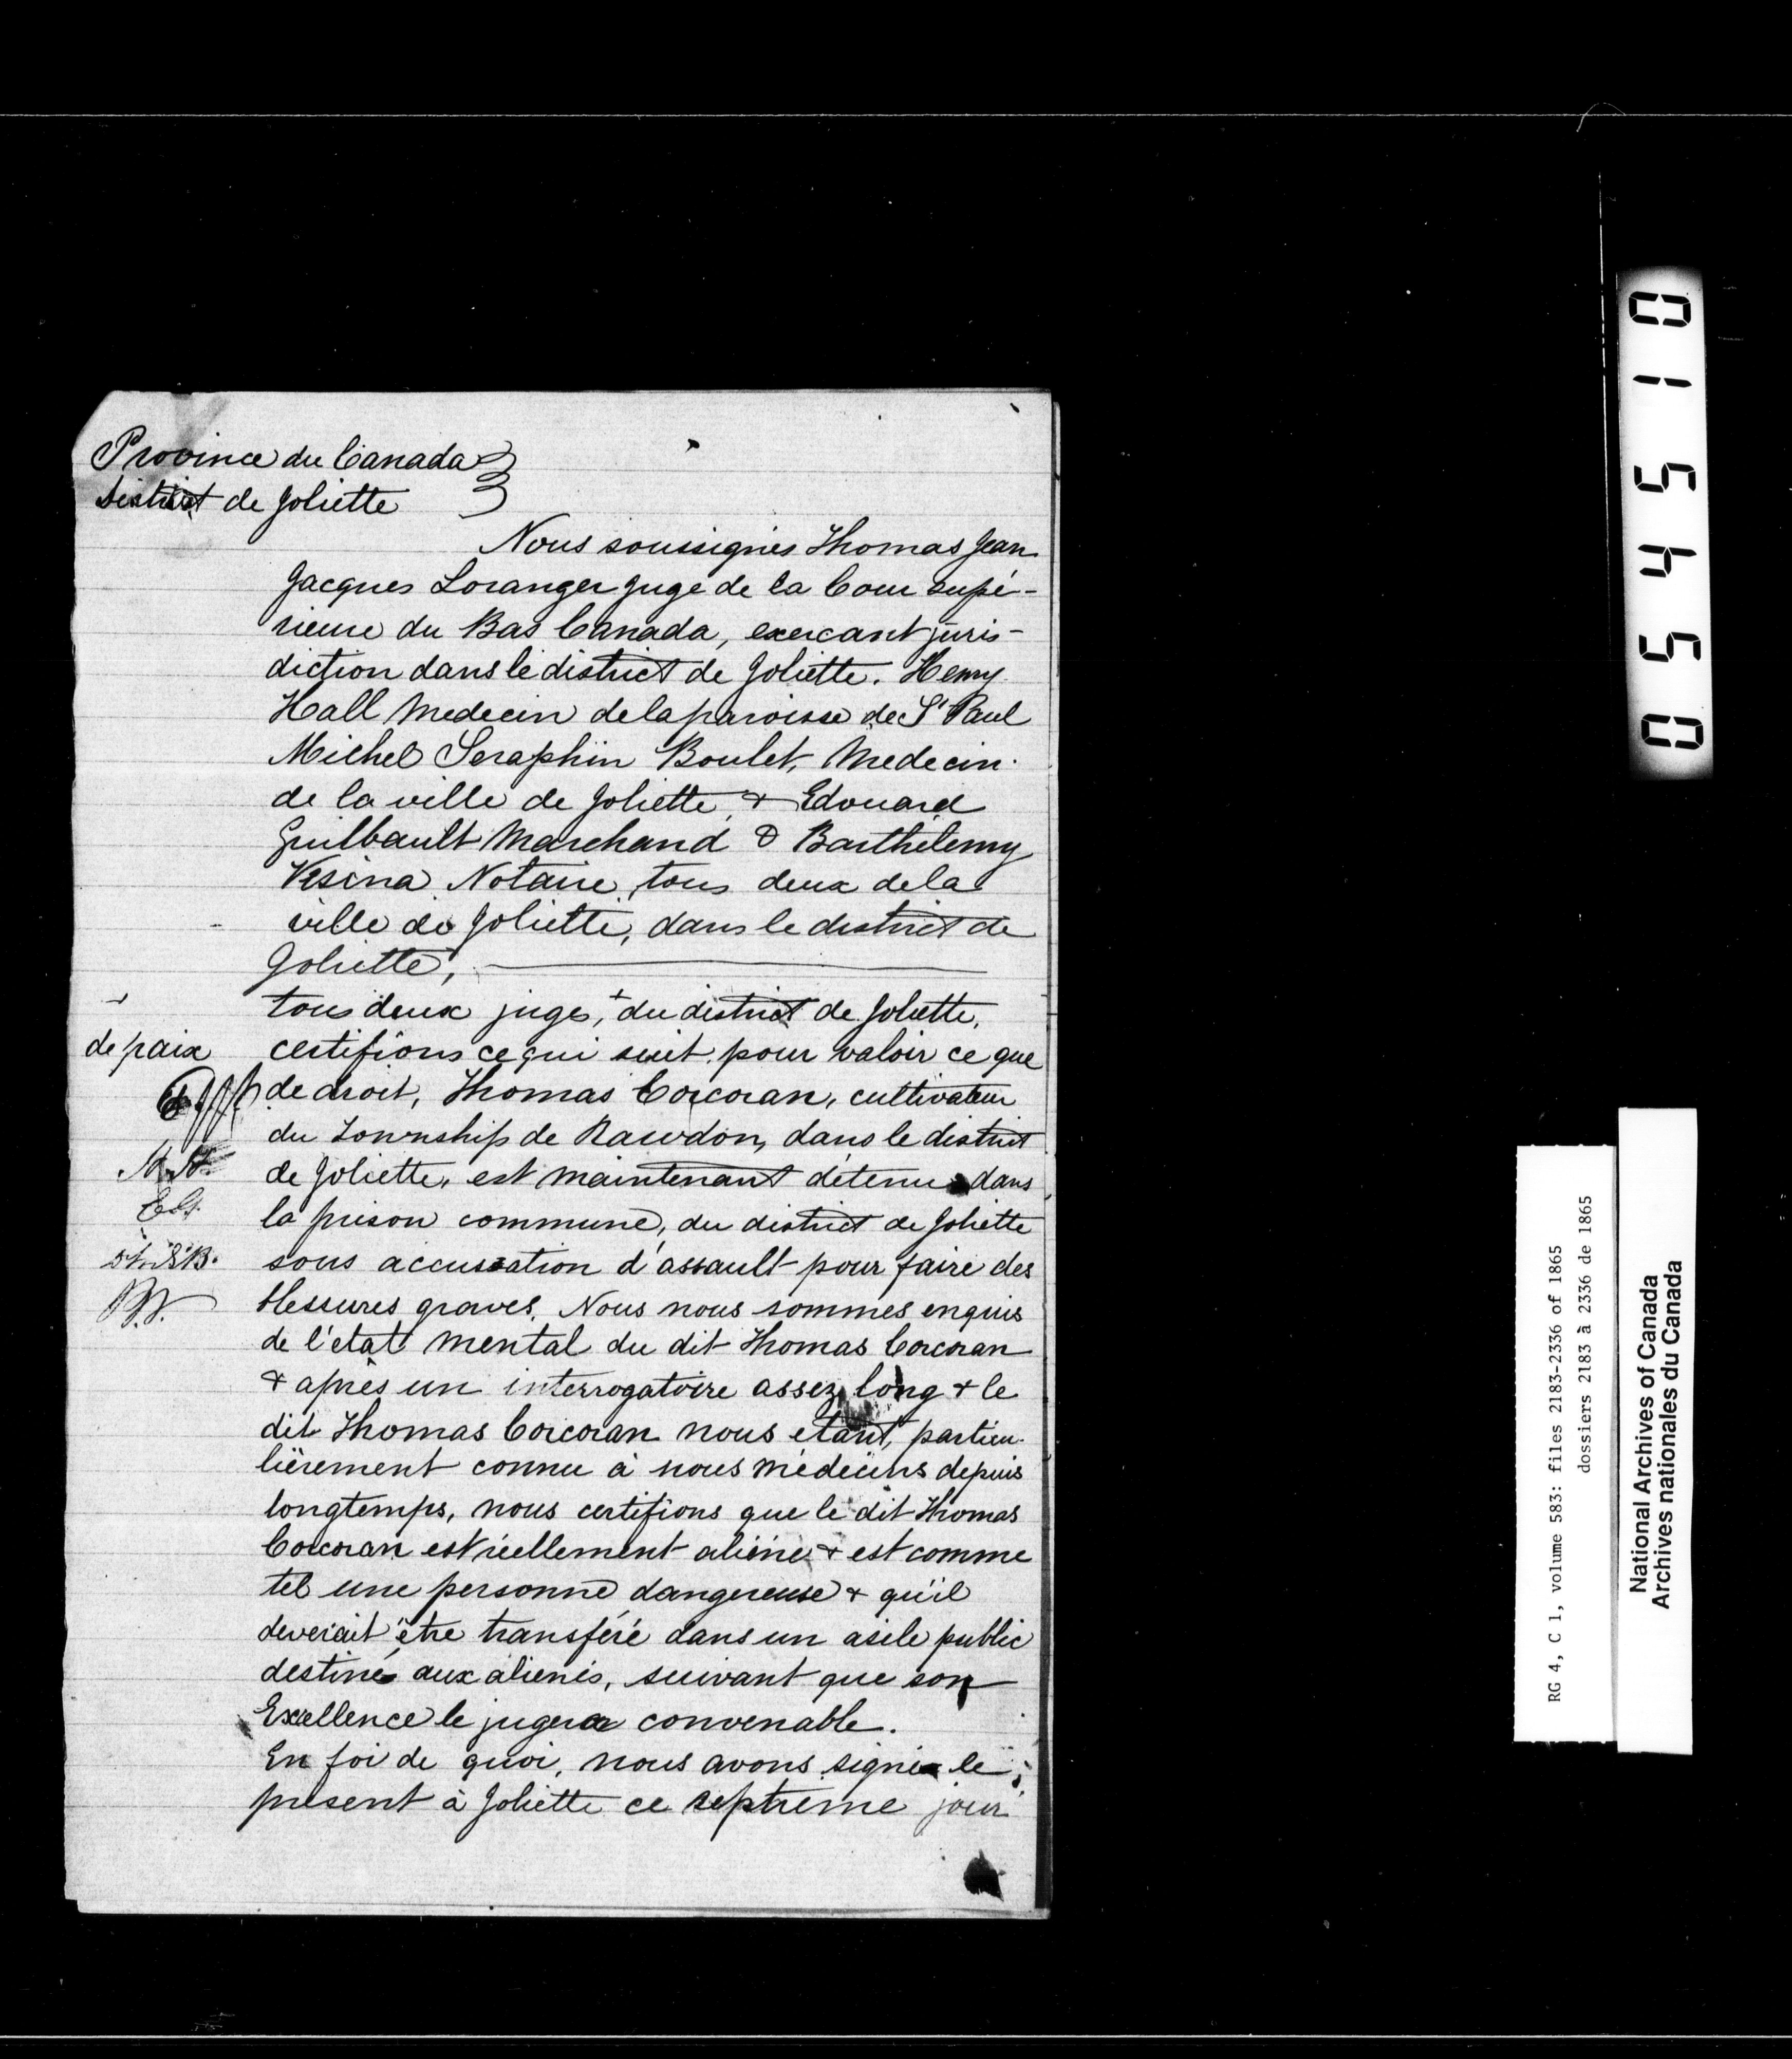 Province du Canada
District de Joliette
Nous soussignés Thomas Jean
Jacques Loranger Juge de la Cour supé-
rieure du Bas Canada, exercant juris-
diction dans le district de Joliette. Henry
Hall Medecin de la paroisse de St Paul
Michel Seraphin Boulet, Medecin
de la ville de Joliette, & Edouard
Guilbault Marchand & Barthélemy
Vésina Notaire, tous deux de la
ville de Joliette, dans le district de
Joliette,
tous deux juges, + du district de Joliette,
de paix
certifions ce qui suit pour valoir ce que
de droit, Thomas Corcoran, cultivateur
du Township de Rawdon, dans le district
de Joliette, est maintenant détenu dans
la prison commune, du district de Joliette
sous accusation d'assault pour faire des
blessures graves. Nous nous sommes enquis
de l'état mental du dit Thomas Corcoran
& après un interrogatoire assez long & le
dit Thomas Corcoran nous etant, particu-
lièrement connu à nous médecins depuis
longtemps, nous certifions que le dit Thomas
Corcoran est réellement aliéné & est comme
tel une personne dangereuse & qu'il
deverait être transféré dans un asile public
destiné aux aliénés, suivant que son
Excellence le jugera convenable.
En foi de quoi, nous avons signé le
présent à Joliette ce septieme jour
M.S.B.
0 1 5 4 5 0
RG 4, C 1, volume 583: files 2183-2336 of 1865
dossiers 2183 à 2336 de 1865
National Archives of Canada
Archives nationales du Canada